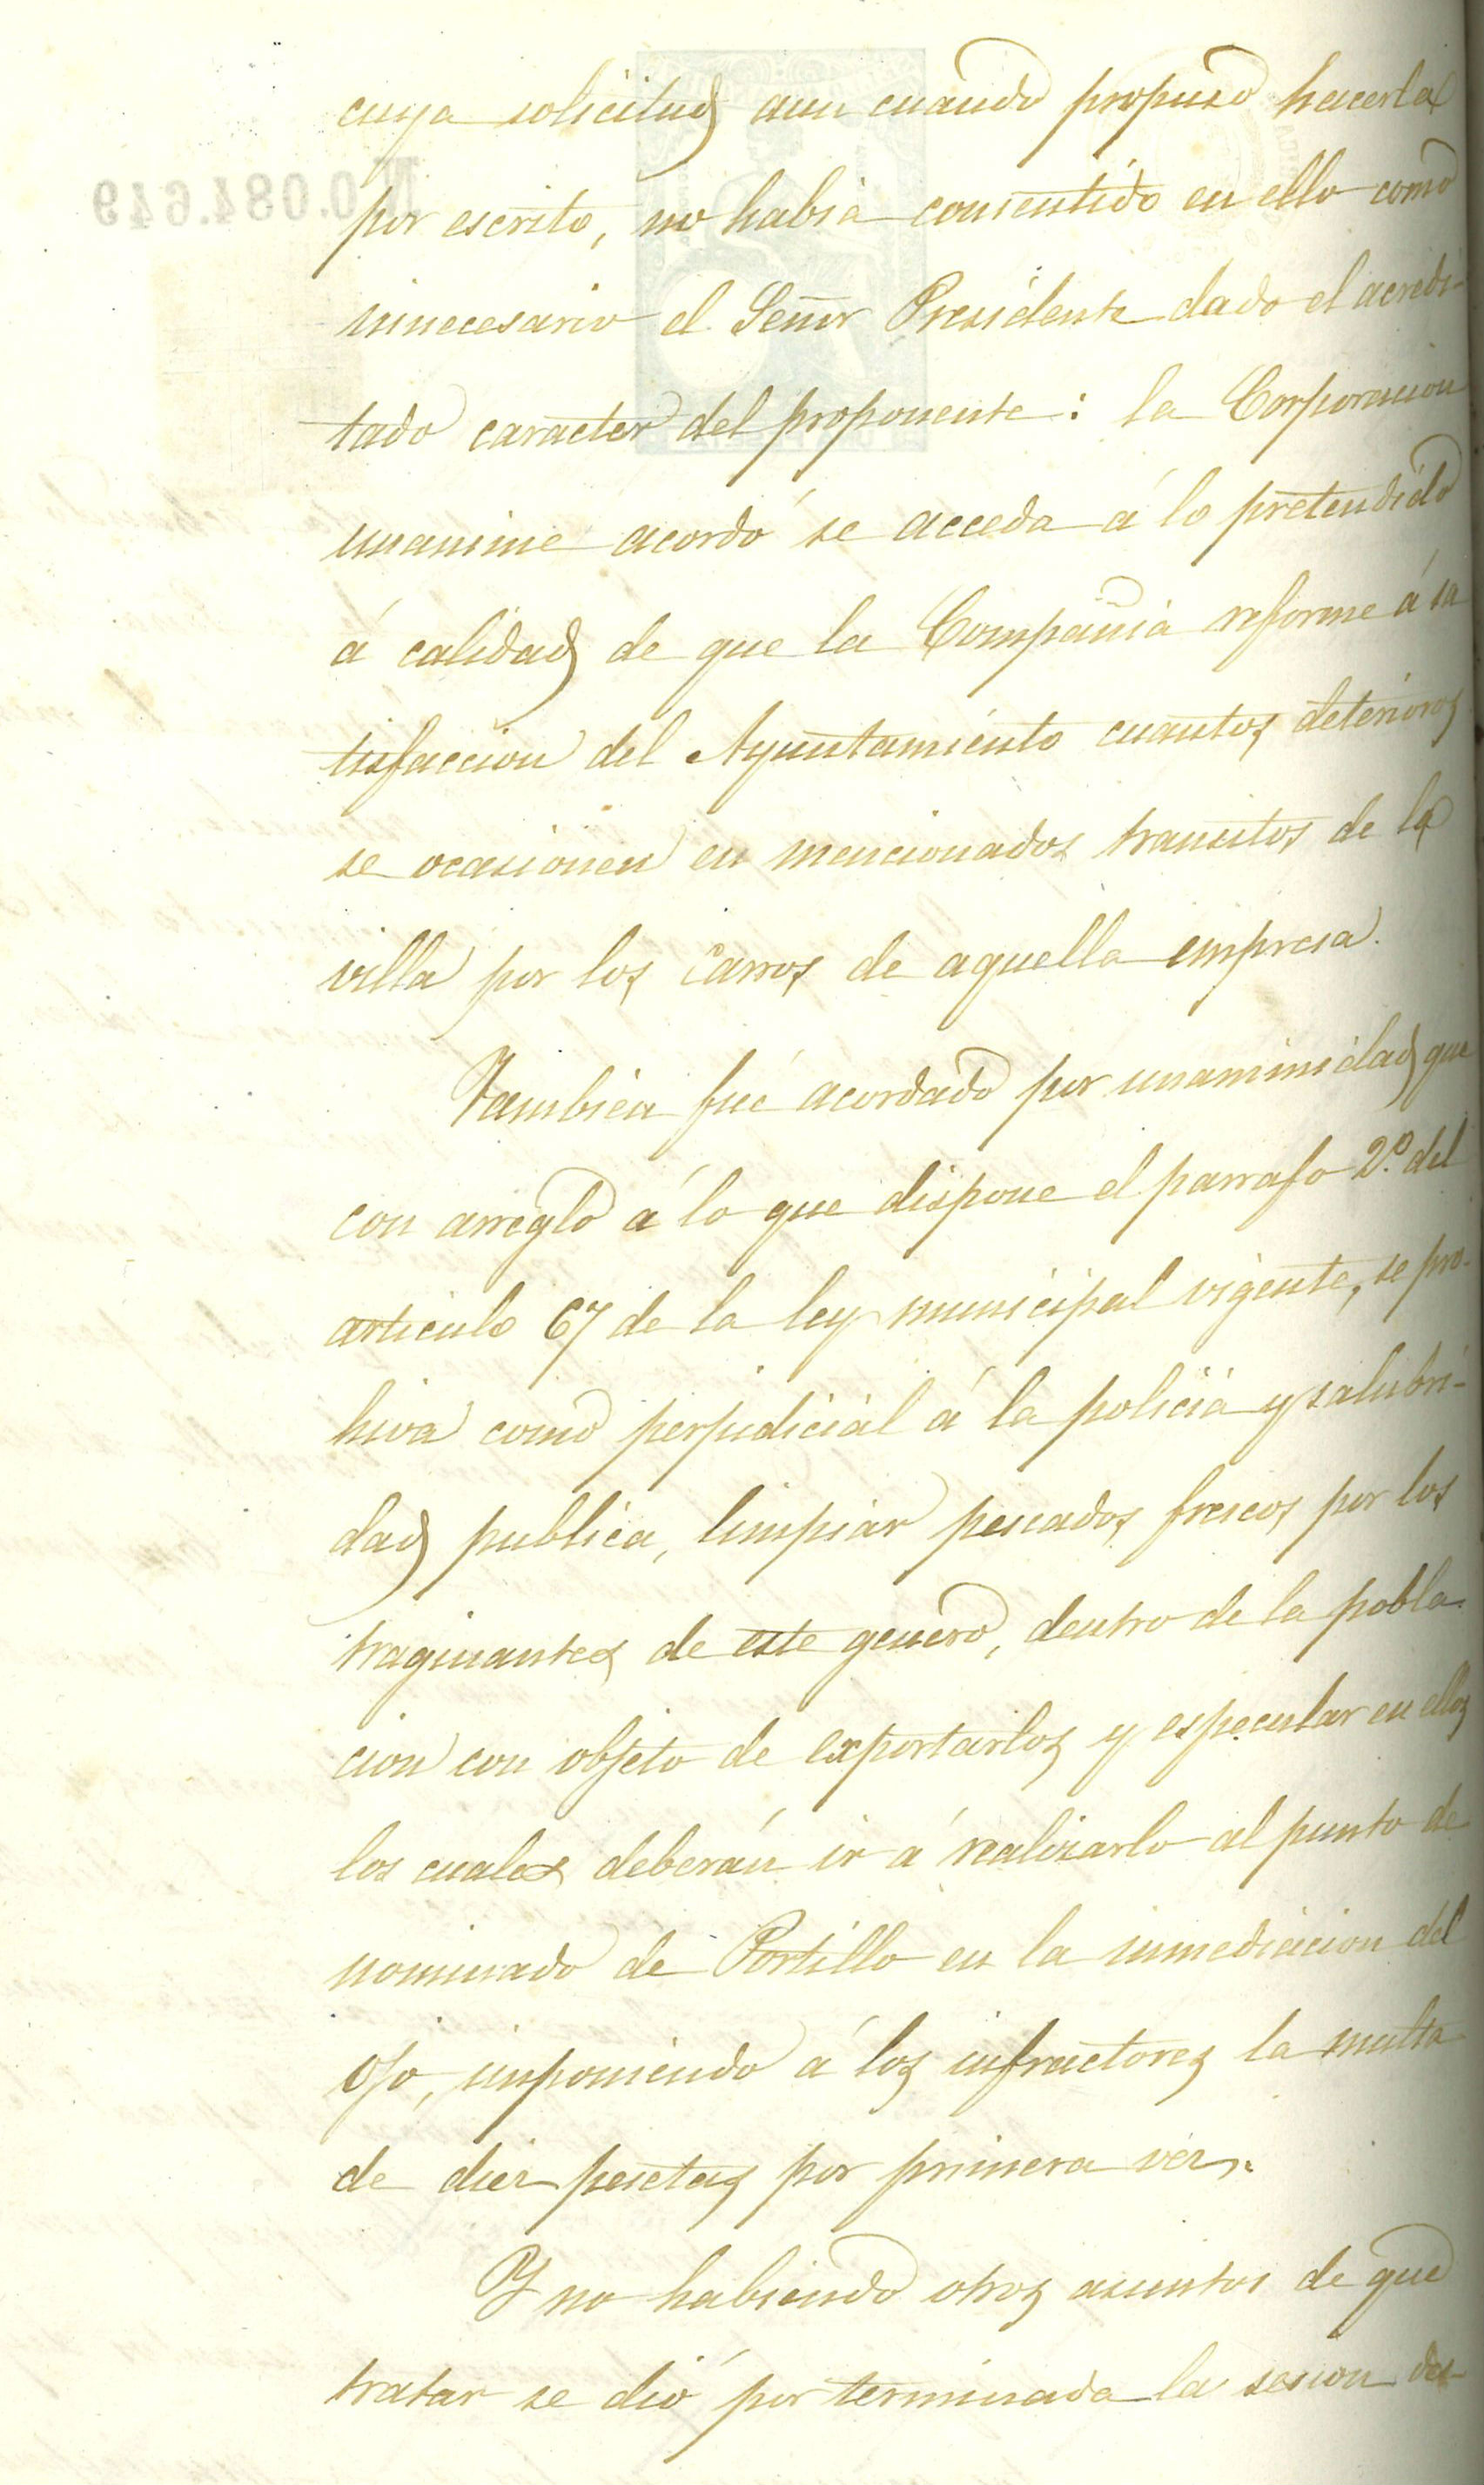 cuya solicitud aun cuando propuso hacerla
por escrito, no habia consentido en ello como
innecesario el Señor Presidente dado el acredi-
tado caracter del proponente: la Corporacion
unanime acordó se acceda á lo pretendido
á calidad de que la Compañia reforme á sa
tisfaccion del Ayuntamiento cuantos deterioros
se ocasionen en mencionados transitos de la
villa por los carros de aquella empresa.
Tambien fué acordado por unanimidad que
con arreglo á lo que dispone el parrafo 2º. del
articulo 67 de la ley municipal vigente, se pro-
hiva como perjudicial á la policia y salubri-
dad publica, limpiar pescados frescos por los
traginantes de este genero, dentro de la pobla-
cion con objeto de exportarlos y especular en ellos
los cuales deberán ir á realizarlo al punto de
nominado de Portillo en la inmediacion del
ojo, imponiendo á los infractores la multa
de diez pesetas por primera vez.
Y no habiendo otros asuntos de que
tratar se dió por terminada la sesion des-
Nº 0.084.649